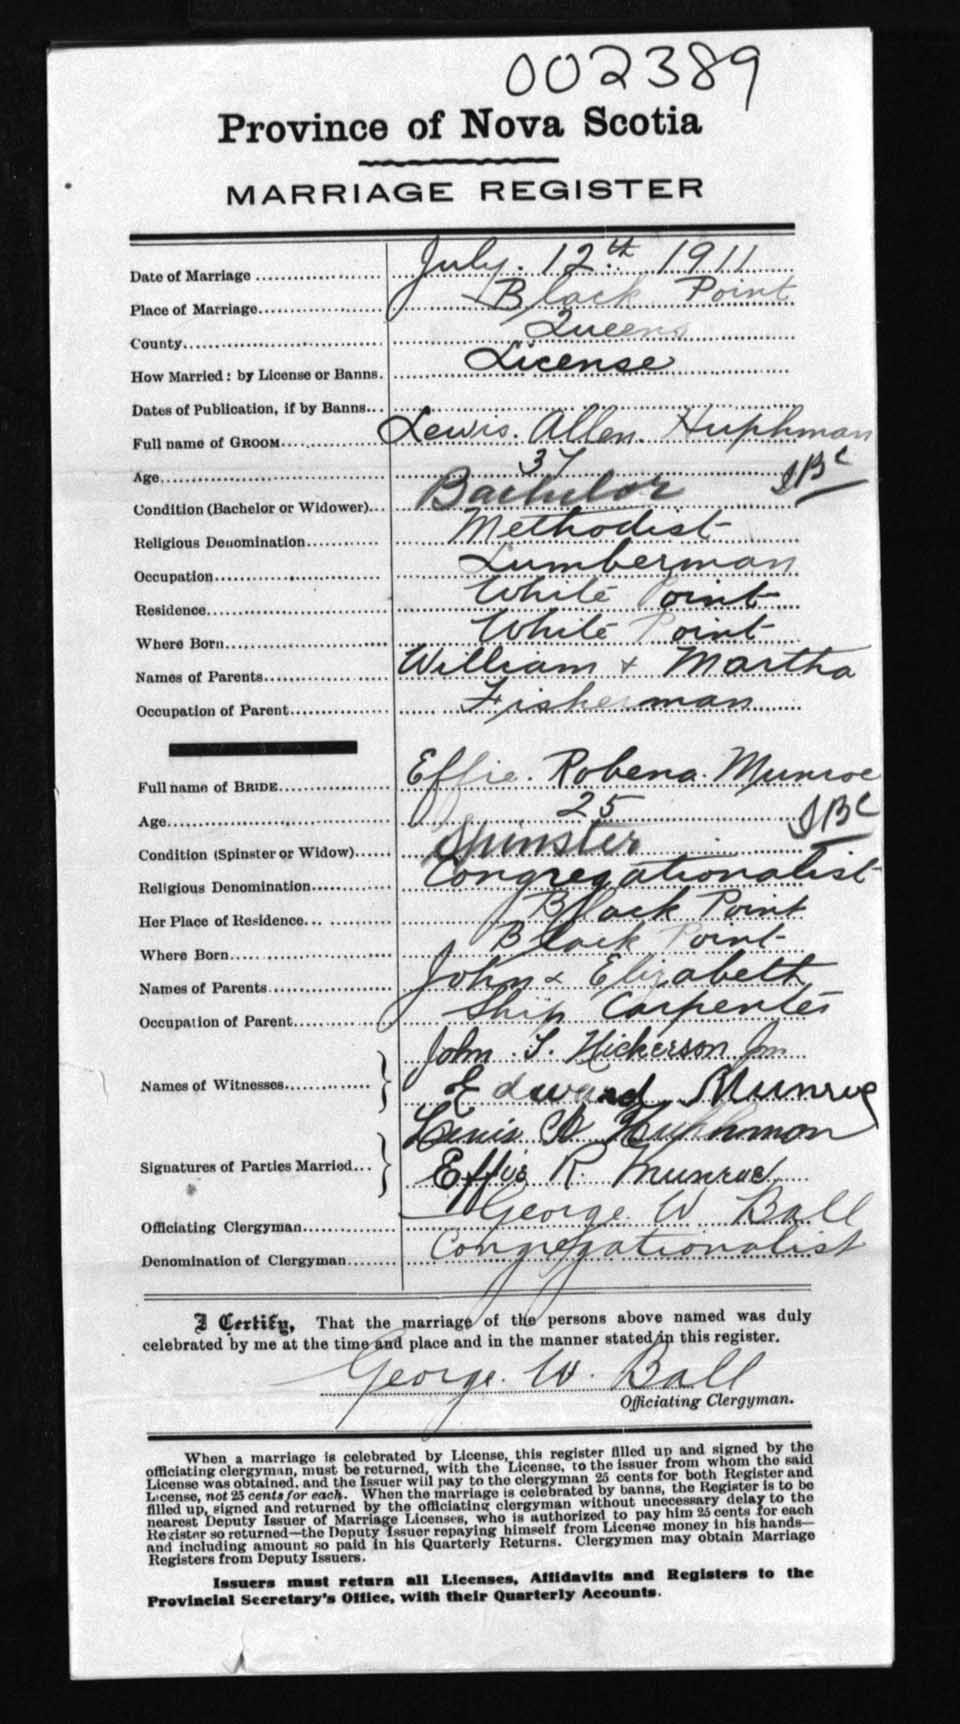 002389
Province of Nova Scotia
MARRIAGE REGISTER
Date of Marriage July. 12th. 1911
Place of Marriage Black Point
County Queens
How Married: by License or Banns. License
Dates of Publication, if by Banns
Full name of GROOM Lewis. Allen. Huphman
Age 37
Condition (Bachelor or Widower) Bachelor
Religious Denomination Methodist
Occupation Lumberman
Residence White Point
Where Born White Point
Names of Parents William + Martha
Occupation of Parent Fisherman
Full name of BRIDE Effie. Robena. Munroe
Age 25
Condition (Spinster or Widow) Spinster
Religious Denomination Congregationalist
Her Place of Residence Black Point
Where Born Black Point
Names of Parents John + Elizabeth
Occupation of Parent Ship Carpenter
John. S. Nickerson Jnr
Names of Witnesses Edward Munroe
Lewis A Huphmon
Signatures of Parties Married Effie R. Munroe
Officiating Clergyman George W Ball
Denomination of Clergyman Congregationalist
I Certify, That the marriage of the persons above named was duly
celebrated by me at the time and place and in the manner stated in this register.
George. W. Ball
Officiating Clergyman.
When a marriage is celebrated by License, this register filled up and signed by the
officiating clergyman, must be returned, with the License, to the issuer from whom the said
License was obtained, and the Issuer will pay to the clergyman 25 cents for both Register and
License, not 25 cents for each. When the marriage is celebrated by banns, the Register is to be
filled up, signed and returned by the officiating clergyman without unnecessary delay to the
nearest Deputy Issuer of Marriage Licenses, who is authorized to pay him 25 cents for each
Register so returned—the Deputy Issuer repaying himself from License money in his hands—
and including amount so paid in his Quarterly Returns. Clergymen may obtain Marriage
Registers from Deputy Issuers.
Issuers must return all Licenses, Affidavits and Registers to the
Provincial Secretary's Office, with their Quarterly Accounts.